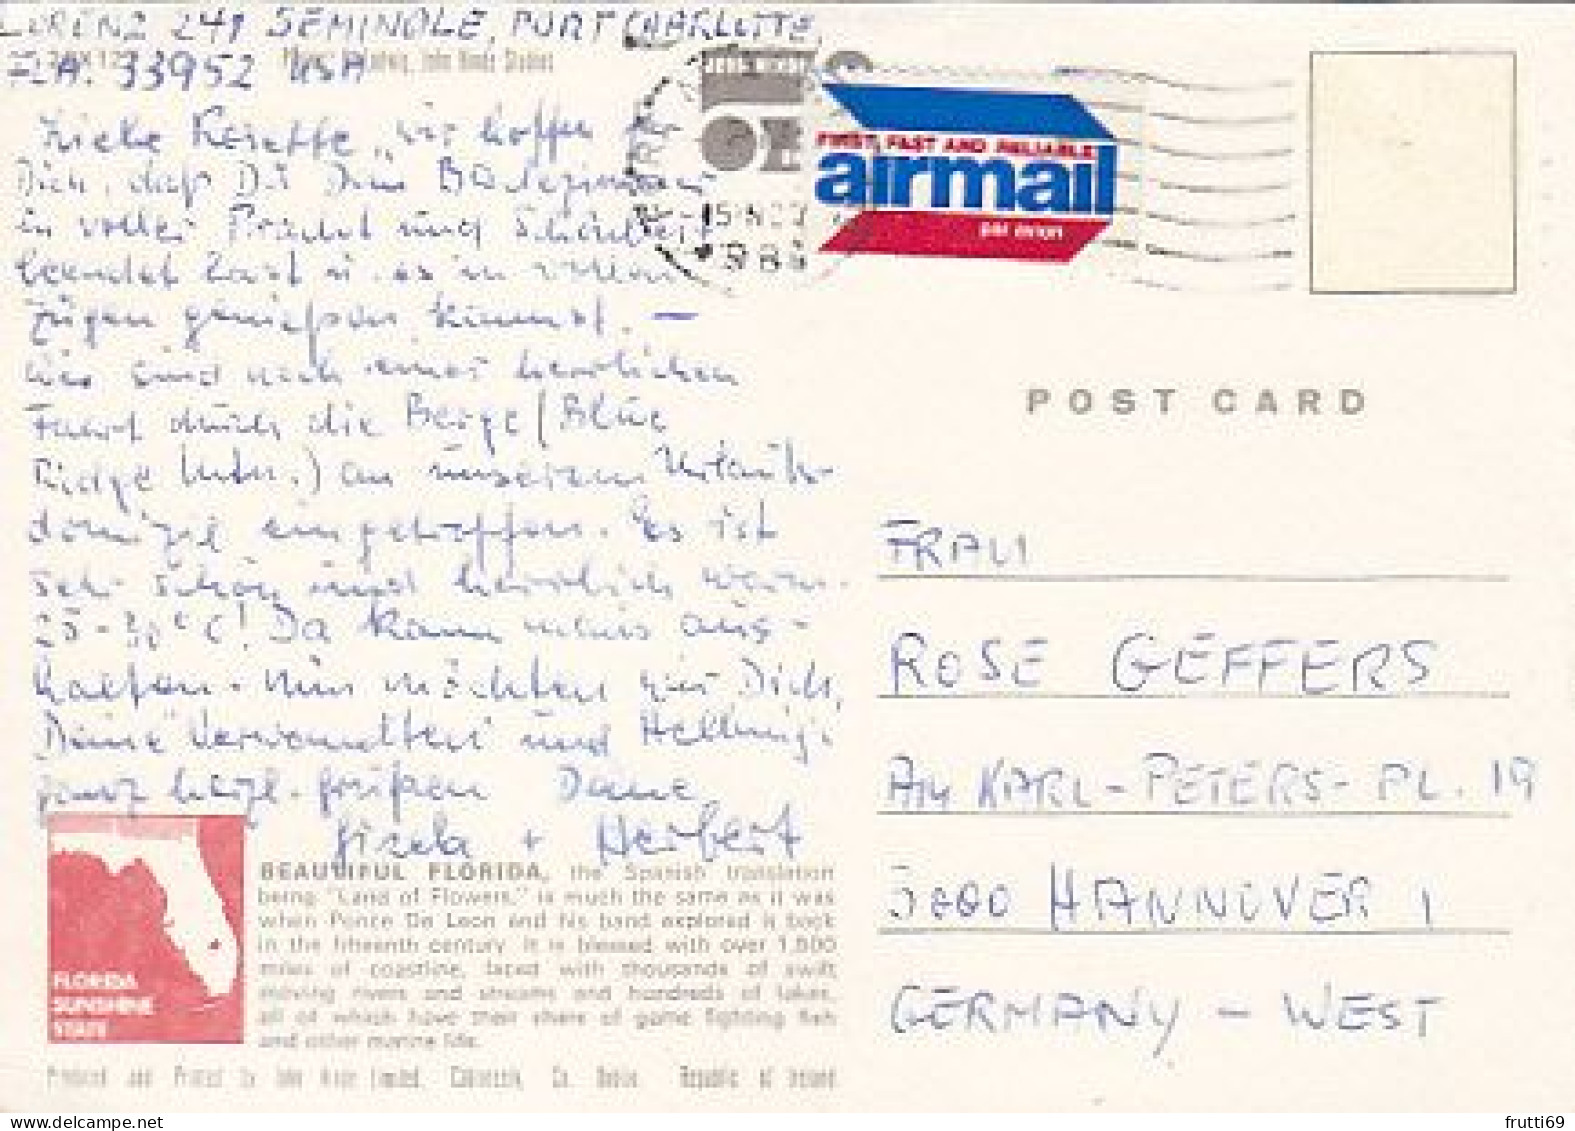 LORENZ 241 SEMINOLE, PORT CHARLOTTE,
FLA. 33952 USA
John Hinde Studios
Liebe Rosette, wir hoffen für
Dich, daß Du Dein Badezimmer
in voller Pracht und Schönheit
beendet hast u. es in vollen
Zügen genießen kannst. —
Wir sind nach einer herrlichen
Fahrt durch die Berge (Blue
Ridge Mtn.) an unserem Urlaubs-
domizil eingetroffen. Es ist
sehr schön und herrlich warm.
25-30°C! Da kann man's aus-
halten. Nun möchten wir Dich,
Deine Verwandten und Hellwigs
ganz herzl. grüßen Deine
Gisela + Herbert
FLORIDA
SUNSHINE
STATE
BEAUTIFUL FLORIDA, the Spanish translation
being "Land of Flowers," is much the same as it was
when Ponce De Leon and his band explored it back
in the fifteenth century. It is blessed with over 1,500
miles of coastline, laced with thousands of swift
moving rivers and streams and hundreds of lakes,
all of which have their share of game fighting fish
and other marine life.
Produced and Printed by John Hinde Limited, Cabinteely, Co. Dublin, Republic of Ireland
15 NOV
FIRST, FAST AND RELIABLE
airmail
par avion
POST CARD
FRAU
ROSE GEFFERS
AM KARL-PETERS-PL. 19
3000 HANNOVER 1
GERMANY - WEST
frutti69